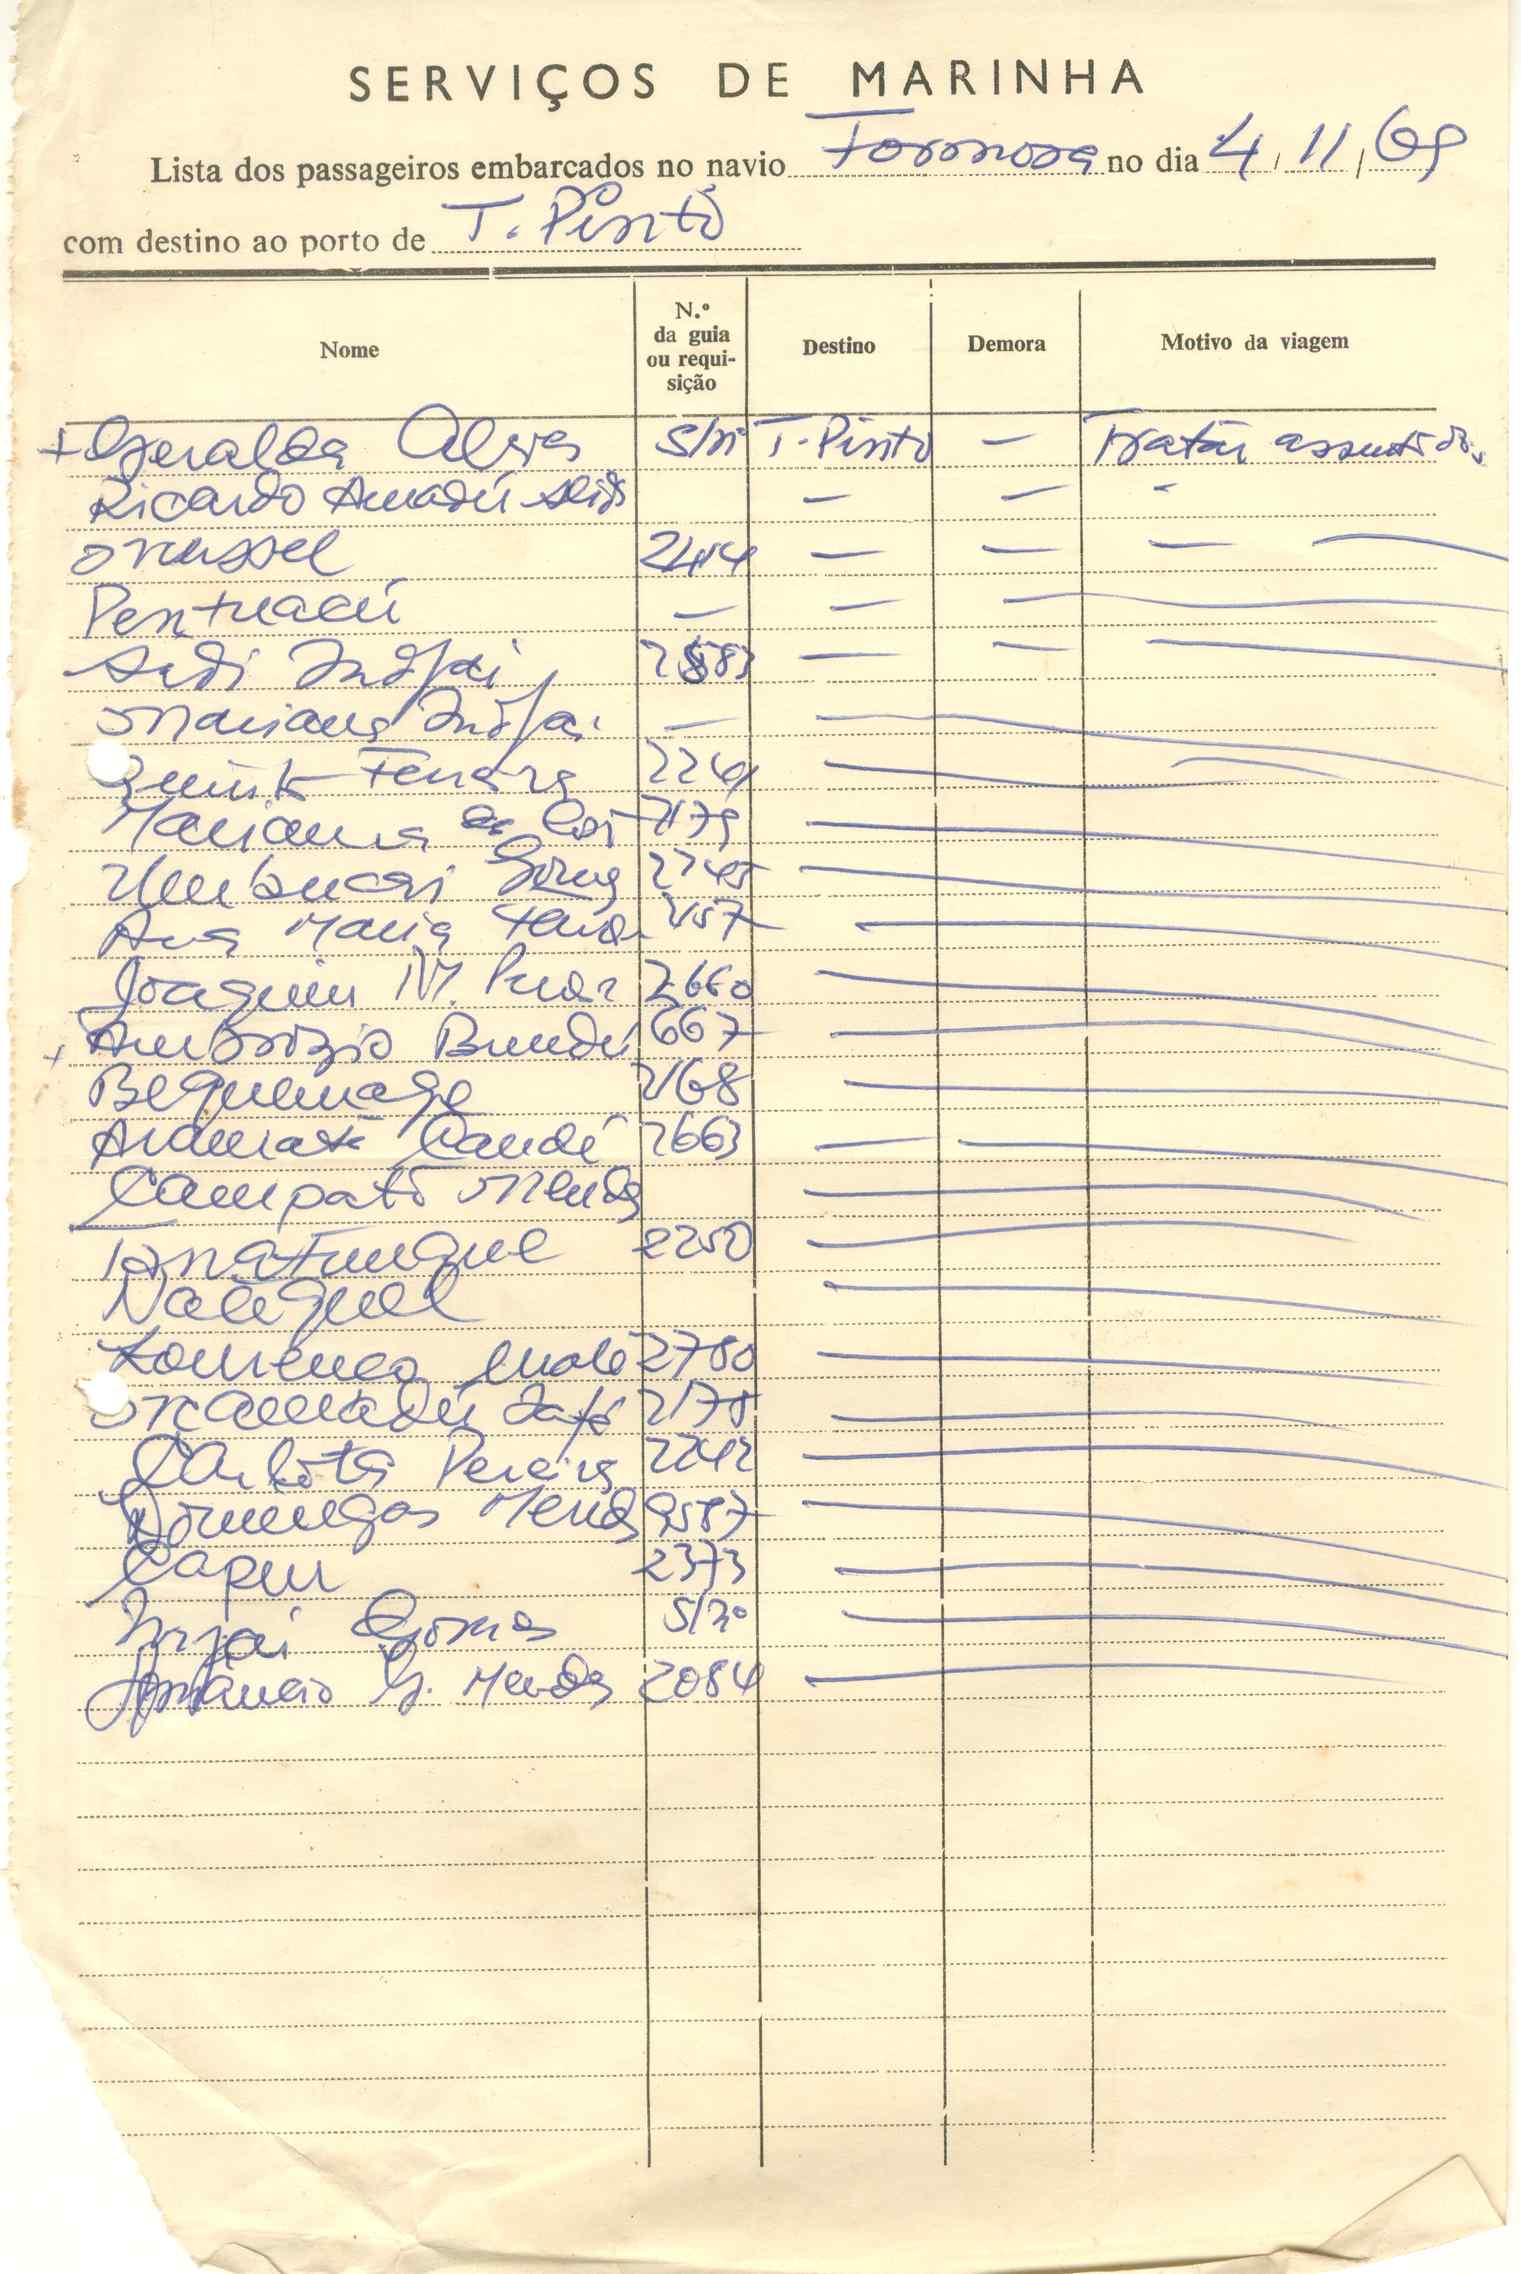 SERVIÇOS DE MARINHA
Lista dos passageiros embarcados no navio Formosa no dia 4/11/69
com destino ao porto de T. Pinto
Nome
N.º da guia ou requi-sição
Destino
Demora
Motivo da viagem
+ Geralda Alves S/nº T. Pinto — Tratar
Ricardo Amadú — — -
Mussel 2414 — — —
Pentuacú — — —
Sedi Indjai — —
Mariana Indjai — —
Ferreira 2241 —
Mariana 2179 —
Umbucai Gomes 2245 —
Ana Maria 2157 —
Joaquim M. 2660 —
+ Ambrózio Bundú 667 —
Bequemage 2168 —
Candé 2663 — —
Campató Mendes —
2250 —
—
Lourenço 2780 —
Mamadú 2178 —
Carlota Pereira 2242 —
Domingos Mendes 9587 —
Capu 2373 —
Injai Gomes S/nº —
Amâncio G. Mendes 2084 —